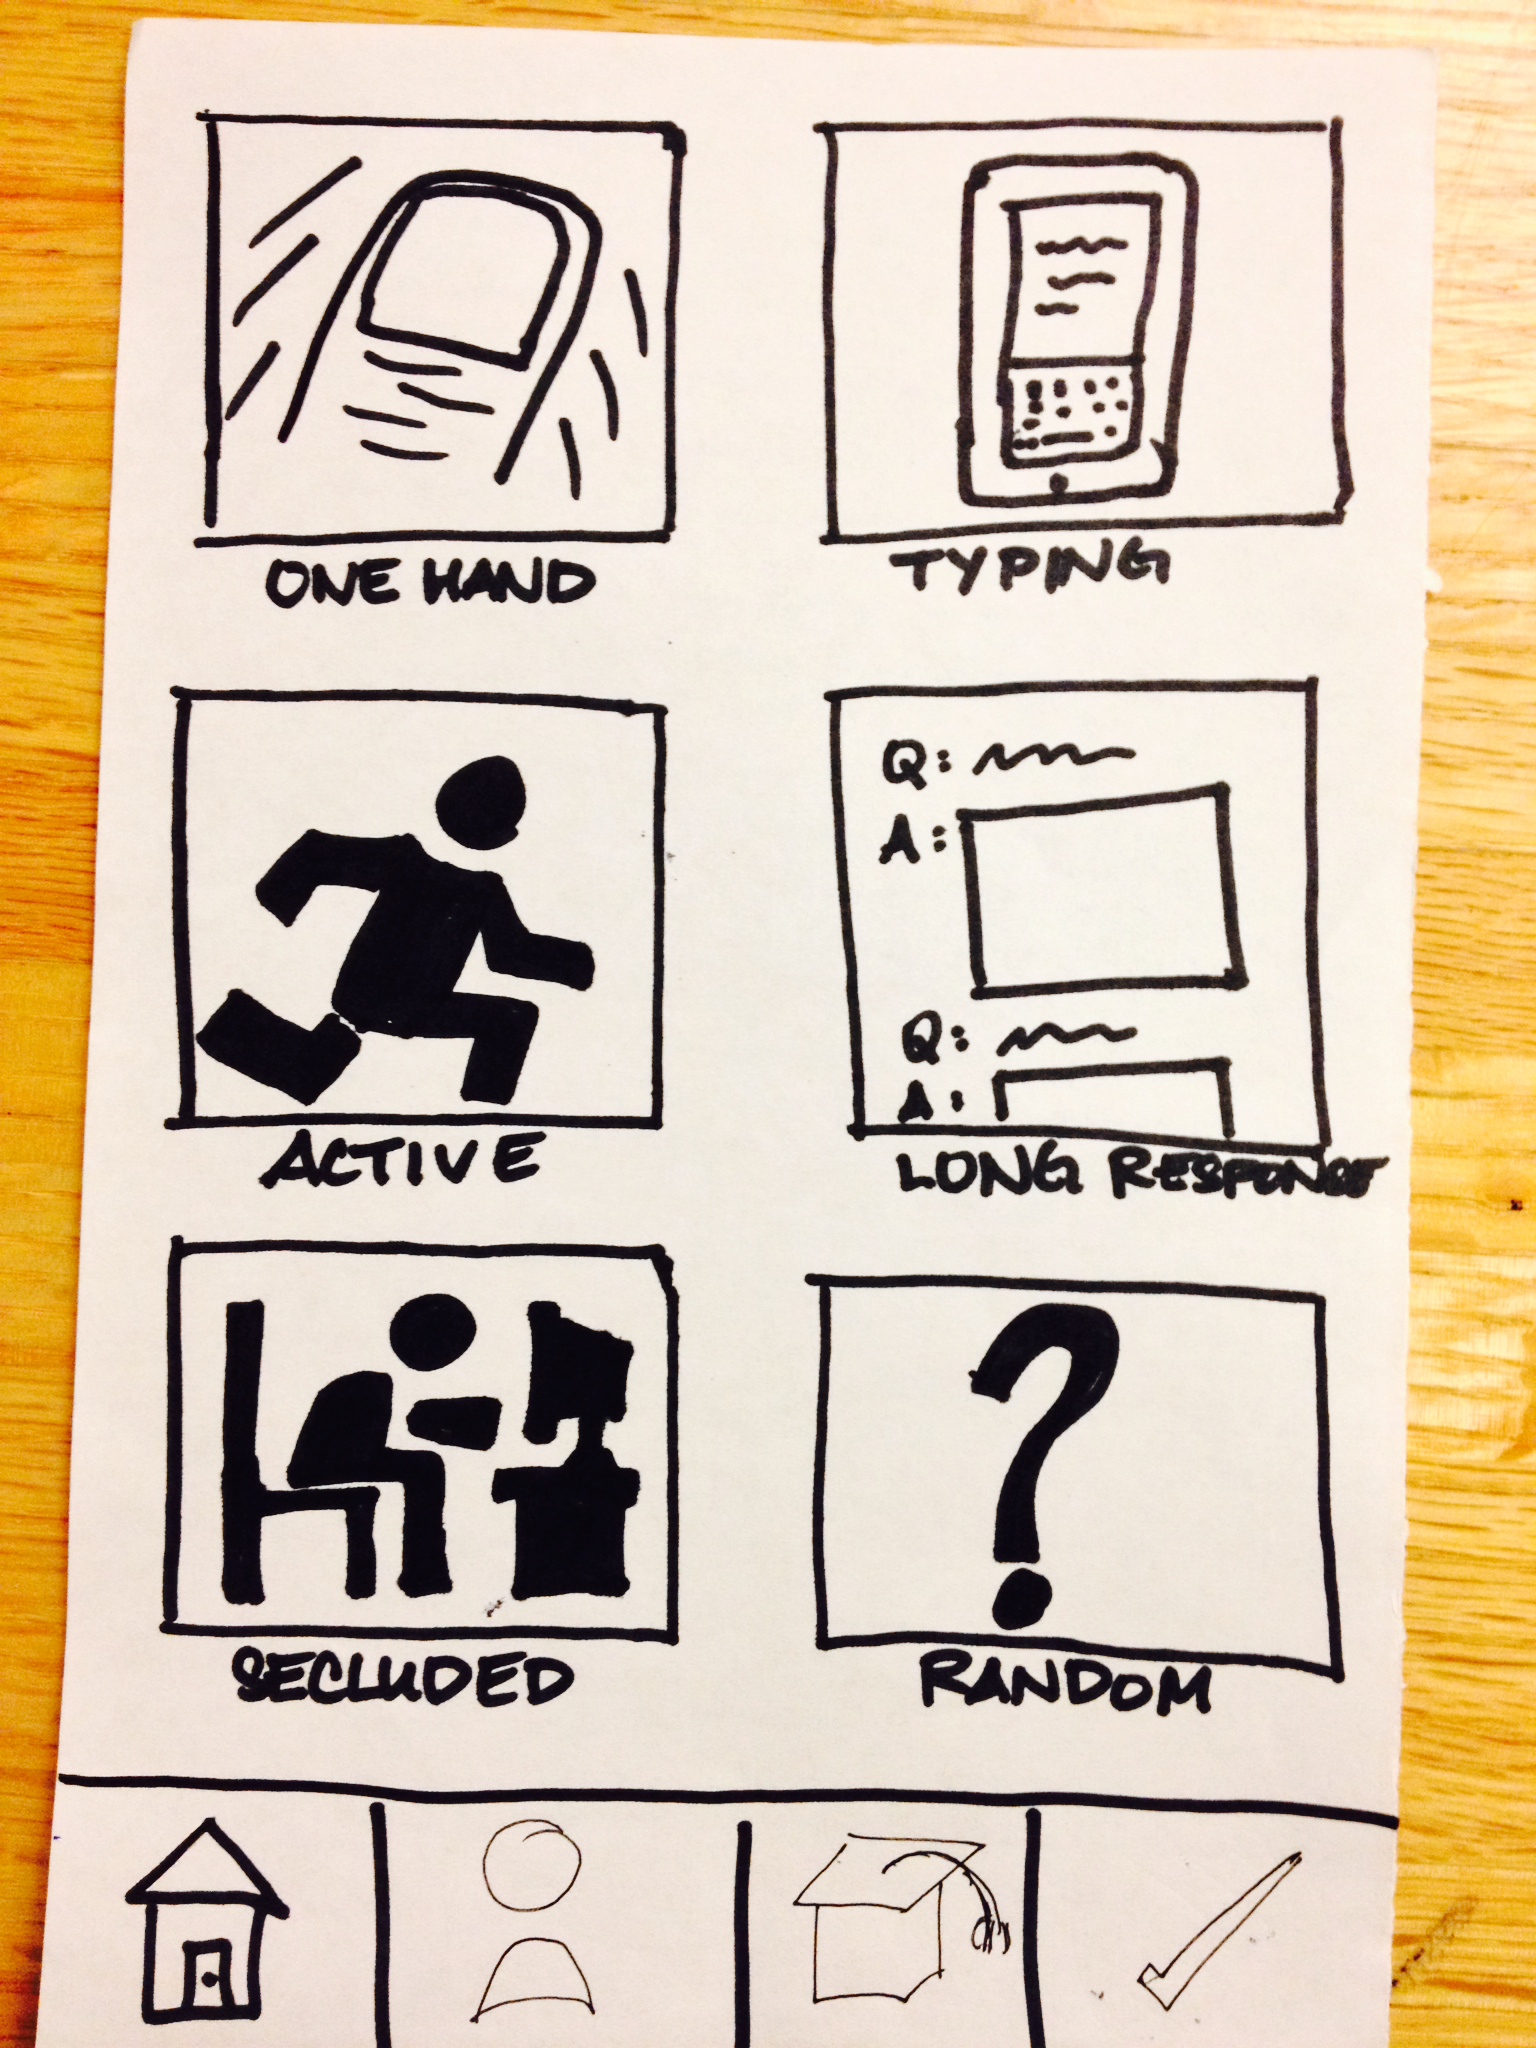 ONE HAND
TYPING
Q:
A:
Q:
A:
ACTIVE
LONG RESPONSE
?
SECLUDED
RANDOM